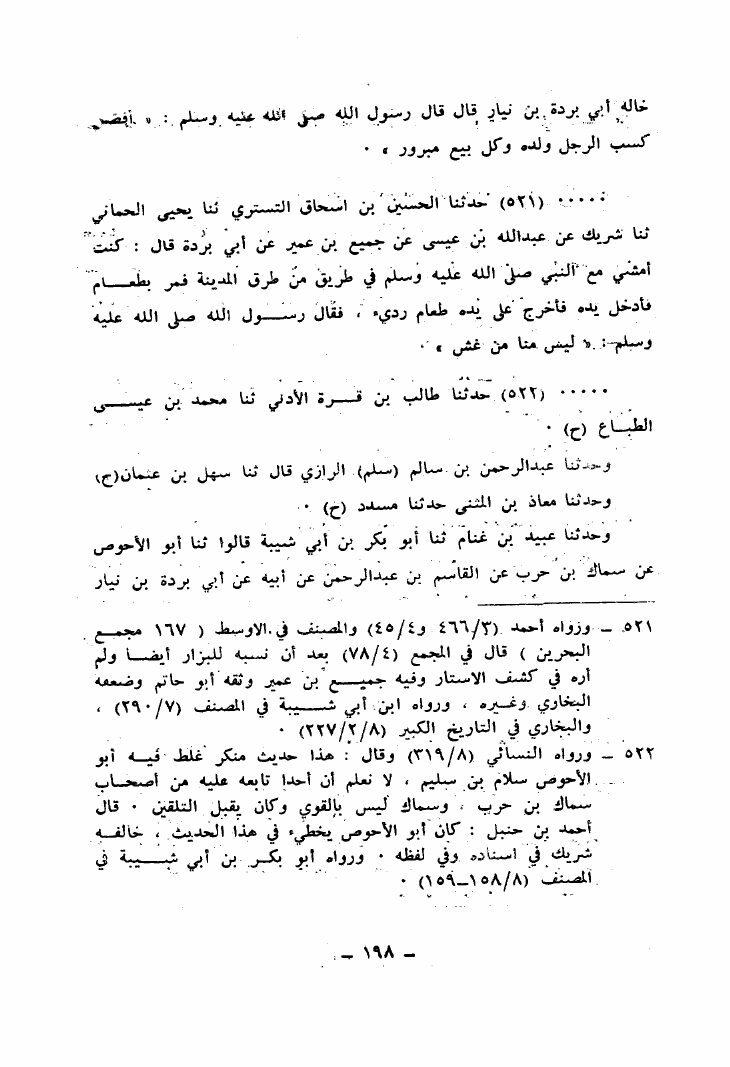 خاله أبي بردة بن نيار قال قال رسول الله صلى الله عليه وسلم : « أفضل
كسب الرجل ولده وكل بيع مبرور » ٠
٠٠٠٠٠ (٥٢١) حدثنا الحسين بن اسحاق التستري ثنا يحيى الحماني
ثنا شريك عن عبدالله بن عيسى عن جميع بن عمير عن أبي بردة قال : كنت
أمشي مع النبي صلى الله عليه وسلم في طريق من طرق المدينة فمر بطعـــام
فأدخل يده فأخرج على يده طعام رديء ، فقال رســـول الله صلى الله عليه
وسلم : « ليس منا من غش » ٠
٠٠٠٠٠ (٥٢٢) حدثنا طالب بن قـــرة الأدني ثنا محمد بن عيســـى
الطبـاع (ح) ٠
وحدثنا عبدالرحمن بن سالم (سلم) الرازي قال ثنا سهل بن عثمان(ح)
وحدثنا معاذ بن المثنى حدثنا مسدد (ح) ٠
وحدثنا عبيد بن غنام ثنا أبو بكر بن أبي شيبة قالوا ثنا أبو الأحوص
عن سماك بن حرب عن القاسم بن عبدالرحمن عن أبيه عن أبي بردة بن نيار
٥٢١ ـ ورواه أحمد (٤٦٦/٣ و٤٥/٤) والمصنف في الاوسط ( ١٦٧ مجمـع
البحرين ) قال في المجمع (٧٨/٤) بعد أن نسبه للبزار أيضـا ولم
أره في كشف الاستار وفيه جميـــع بن عمير وثقه أبو حاتم وضعفه
البخاري وغيره ، ورواه ابن أبي شـــيبة في المصنف (٢٩٠/٧) ،
والبخاري في التاريخ الكبير (٢٢٧/٢/٨) ٠
٥٢٢ ـ ورواه النسائي (٣١٩/٨) وقال : هذا حديث منكر غلط فيـه أبو
الأحوص سلام بن سليم ، لا نعلم أن أحدا تابعه عليه من أصحـاب
سماك بن حرب ، وسماك ليس بالقوي وكان يقبل التلقين ٠ قال
أحمد بن حنبل : كان أبو الأحوص يخطيء في هذا الحديث ، خالفـه
شريك في اسناده وفي لفظه ٠ ورواه أبو بكـر بن أبي شـــيبة في
المصنف (١٥٨/٨ــ١٥٩) ٠
ـ ١٩٨ ـ